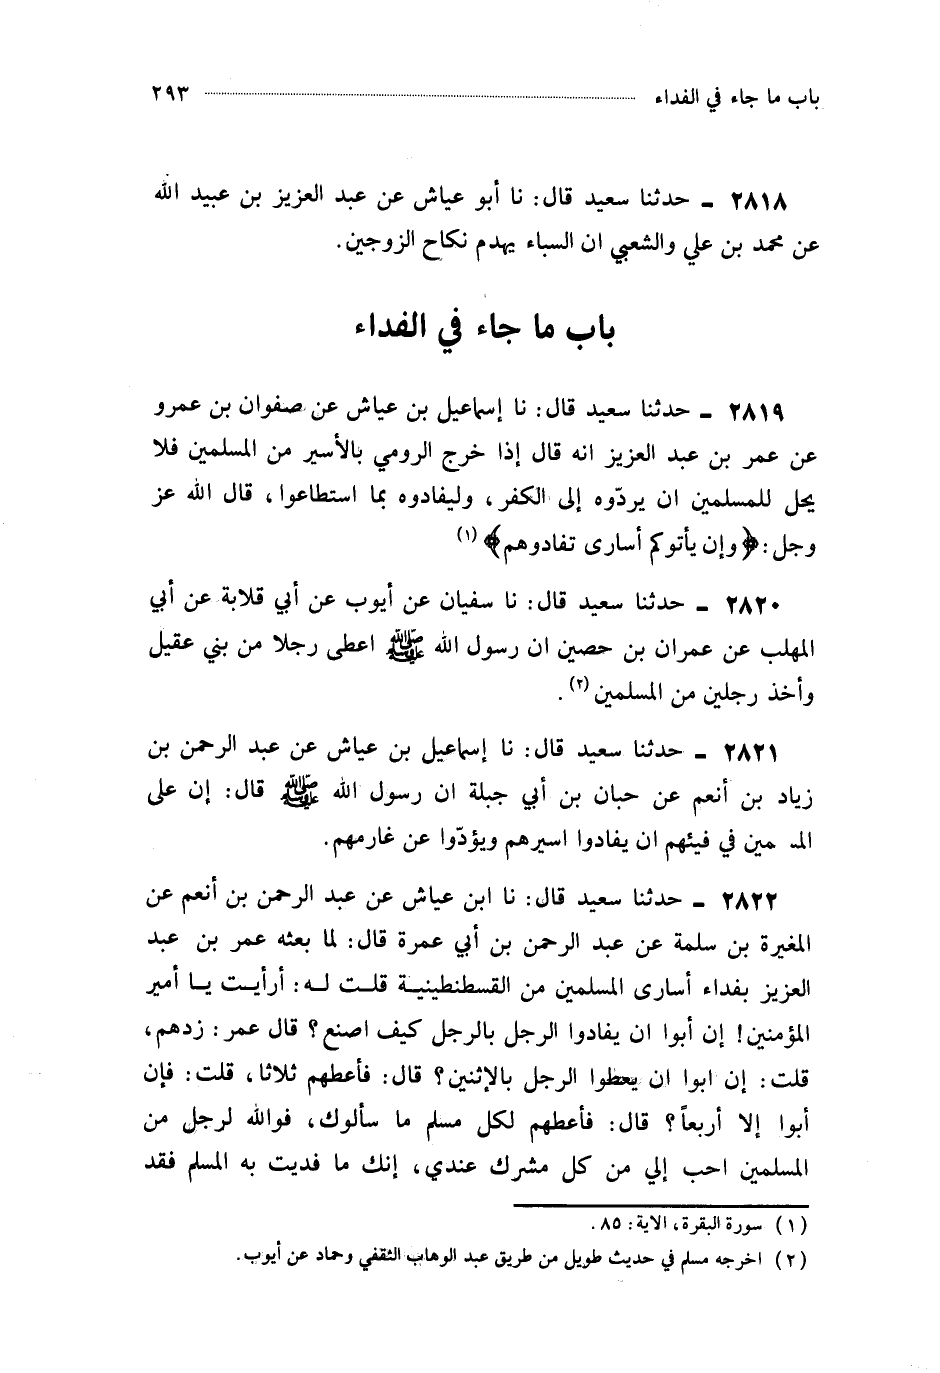 باب ما جاء في الفداء ........................ ٢٩٣
٢٨١٨ ـ حدثنا سعيد قال: نا أبو عياش عن عبد العزيز بن عبيد الله
عن محمد بن علي والشعبي ان السباء يهدم نكاح الزوجين.
باب ما جاء في الفداء
٢٨١٩ ـ حدثنا سعيد قال: نا إسماعيل بن عياش عن صفوان بن عمرو
عن عمر بن عبد العزيز انه قال إذا خرج الرومي بالأسير من المسلمين فلا
يحل للمسلمين ان يردّوه إلى الكفر، وليفادوه بما استطاعوا، قال الله عز
وجل: ﴿وإن يأتوكم أسارى تفادوهم﴾ (١)
٢٨٢٠ ـ حدثنا سعيد قال: نا سفيان عن أيوب عن أبي قلابة عن أبي
المهلب عن عمران بن حصين ان رسول الله ﷺ اعطى رجلا من بني عقيل
وأخذ رجلين من المسلمين (٢).
٢٨٢١ ـ حدثنا سعيد قال: نا إسماعيل بن عياش عن عبد الرحمن بن
زياد بن أنعم عن حبان بن أبي جبلة ان رسول الله ﷺ قال: إن على
المسلمين في فيئهم ان يفادوا اسيرهم ويؤدّوا عن غارمهم.
٢٨٢٢ ـ حدثنا سعيد قال: نا ابن عياش عن عبد الرحمن بن أنعم عن
المغيرة بن سلمة عن عبد الرحمن بن أبي عمرة قال: لما بعثه عمر بن عبد
العزيز بفداء أسارى المسلمين من القسطنطينية قلت له: أرأيت يا أمير
المؤمنين! إن أبوا ان يفادوا الرجل بالرجل كيف اصنع؟ قال عمر: زدهم،
قلت: إن ابوا ان يعطوا الرجل بالإثنين؟ قال: فأعطهم ثلاثا، قلت: فإن
أبوا إلا أربعاً؟ قال: فأعطهم لكل مسلم ما سألوك، فوالله لرجل من
المسلمين احب إلي من كل مشرك عندي، إنك ما فديت به المسلم فقد
(١) سورة البقرة، الاية: ٨٥.
(٢) اخرجه مسلم في حديث طويل من طريق عبد الوهاب الثقفي وحماد عن أيوب.